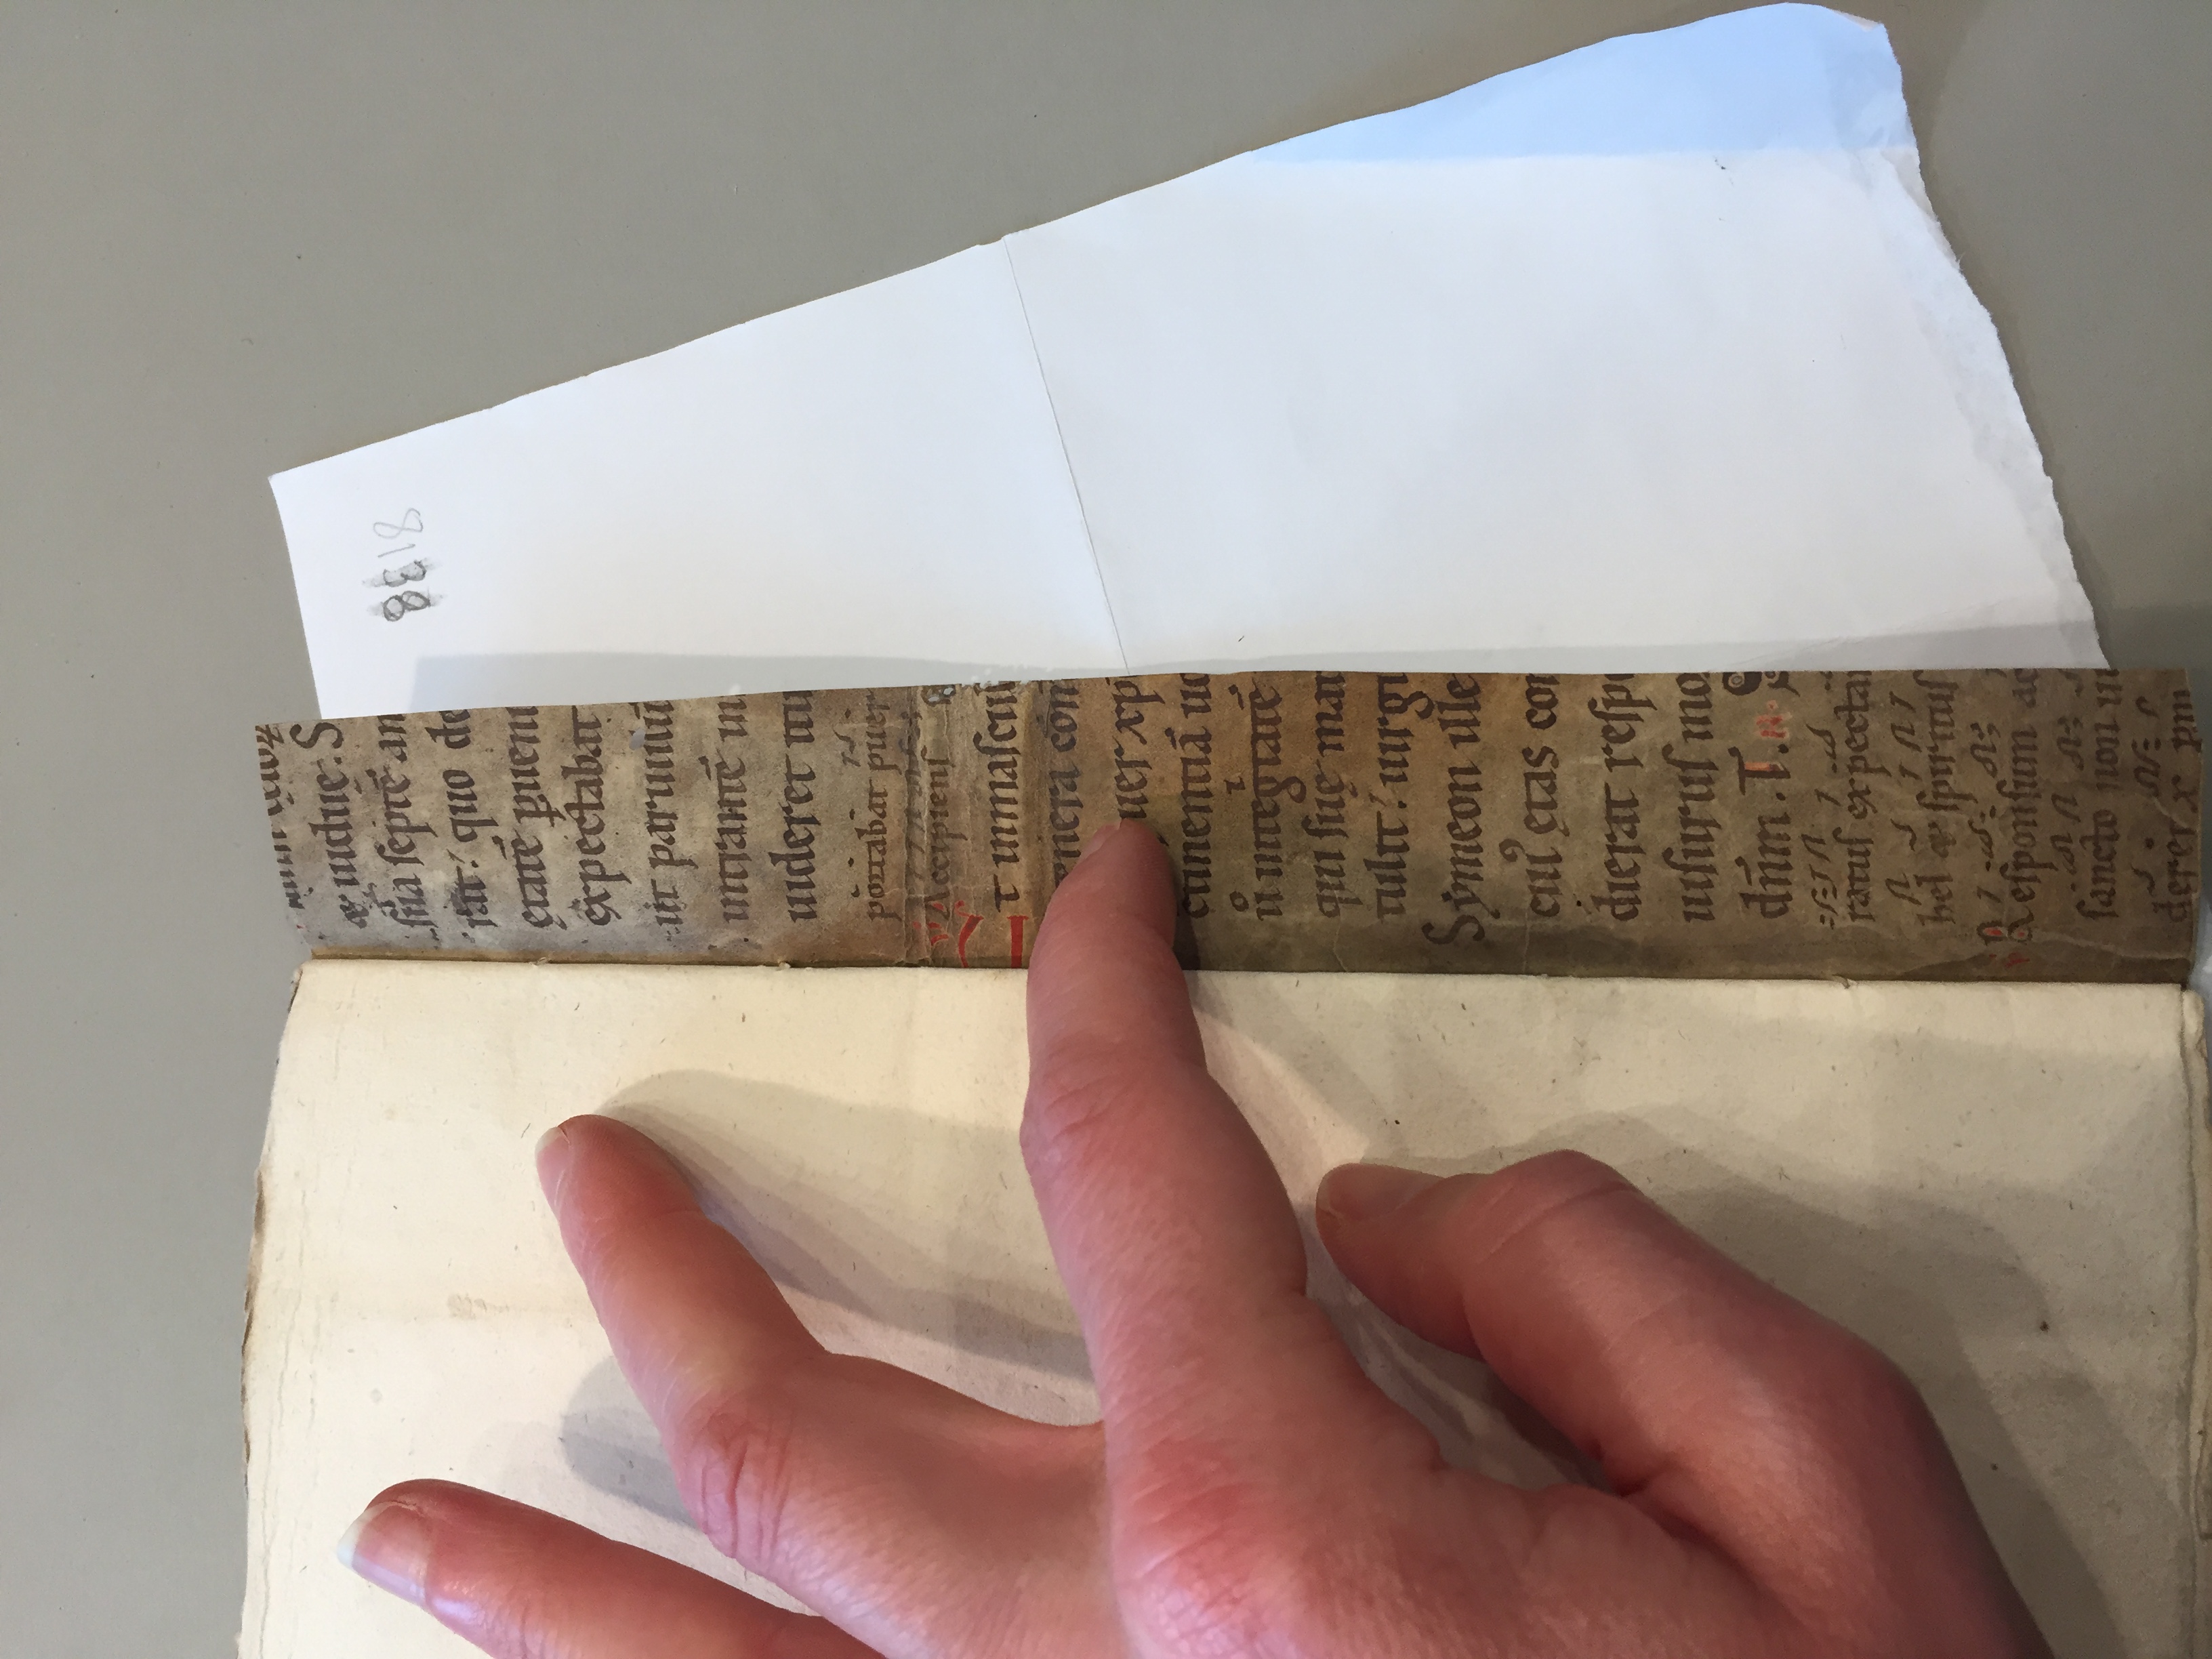 & uiduę. S
sīīa septē an
rat: quo de
ętatē ꝑueni
expectabat
ut paruulū
intrantē in
uideret itu
portabat puer
Accipiens
t inmascul
enera com
uer xp
ctinentiā uo
ů integͥtatē
qui suę mat
tulit: uirgi
Symeon ille
cuiꝰ ętas con
dierat respo
uisurus mo
dn̄m. T. S
ratus expecta
bel & spiritus
Responsum ac
sancto non ui
deret x pm
8818